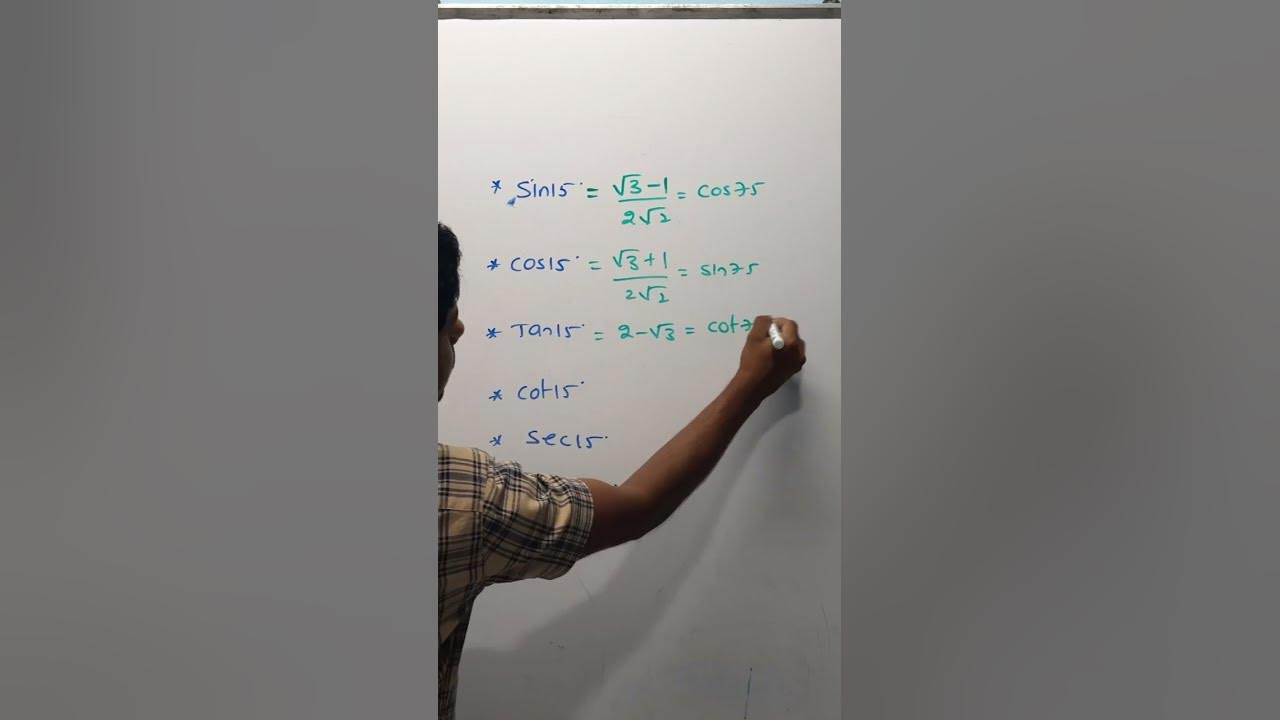 * Sin15° = √3-1/2√2 = cos75
* cos15° = √3+1/2√2 = sin75
* Tan15° = 2-√3 = cot7
* cot15°
* sec15°